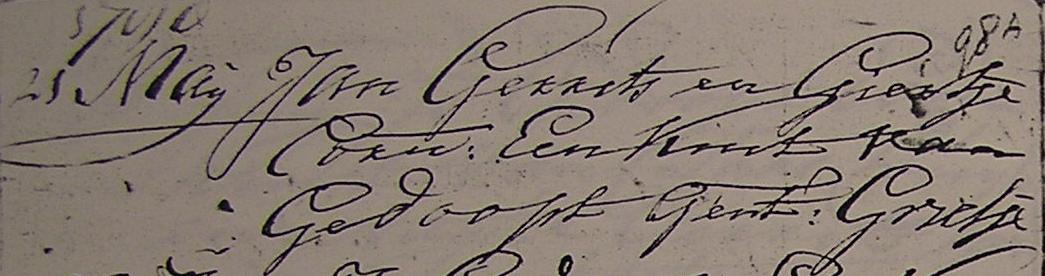 98A
25 Maij Jan Gerrits en Grietje
Corn: Een Kint van
Gedoopt Gent: Grietje